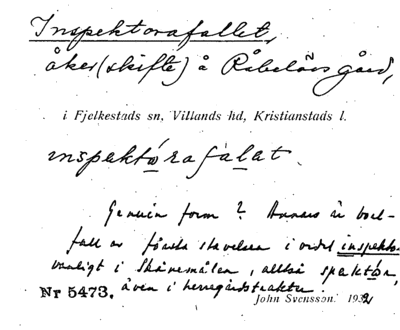 Inspektorafallet,
åker (skifte) å Råbelövs gård,
i Fjelkestads sn, Villands hd, Kristianstads l.
inspektọrafạlat.
Genuin form? Annars är bort-
fall av första stavelsen i ordet inspektor
vanligt i Skånemålen, alltså spektọr,
även i herregårdstrakter.
Nr 5473.
John Svensson. 1932